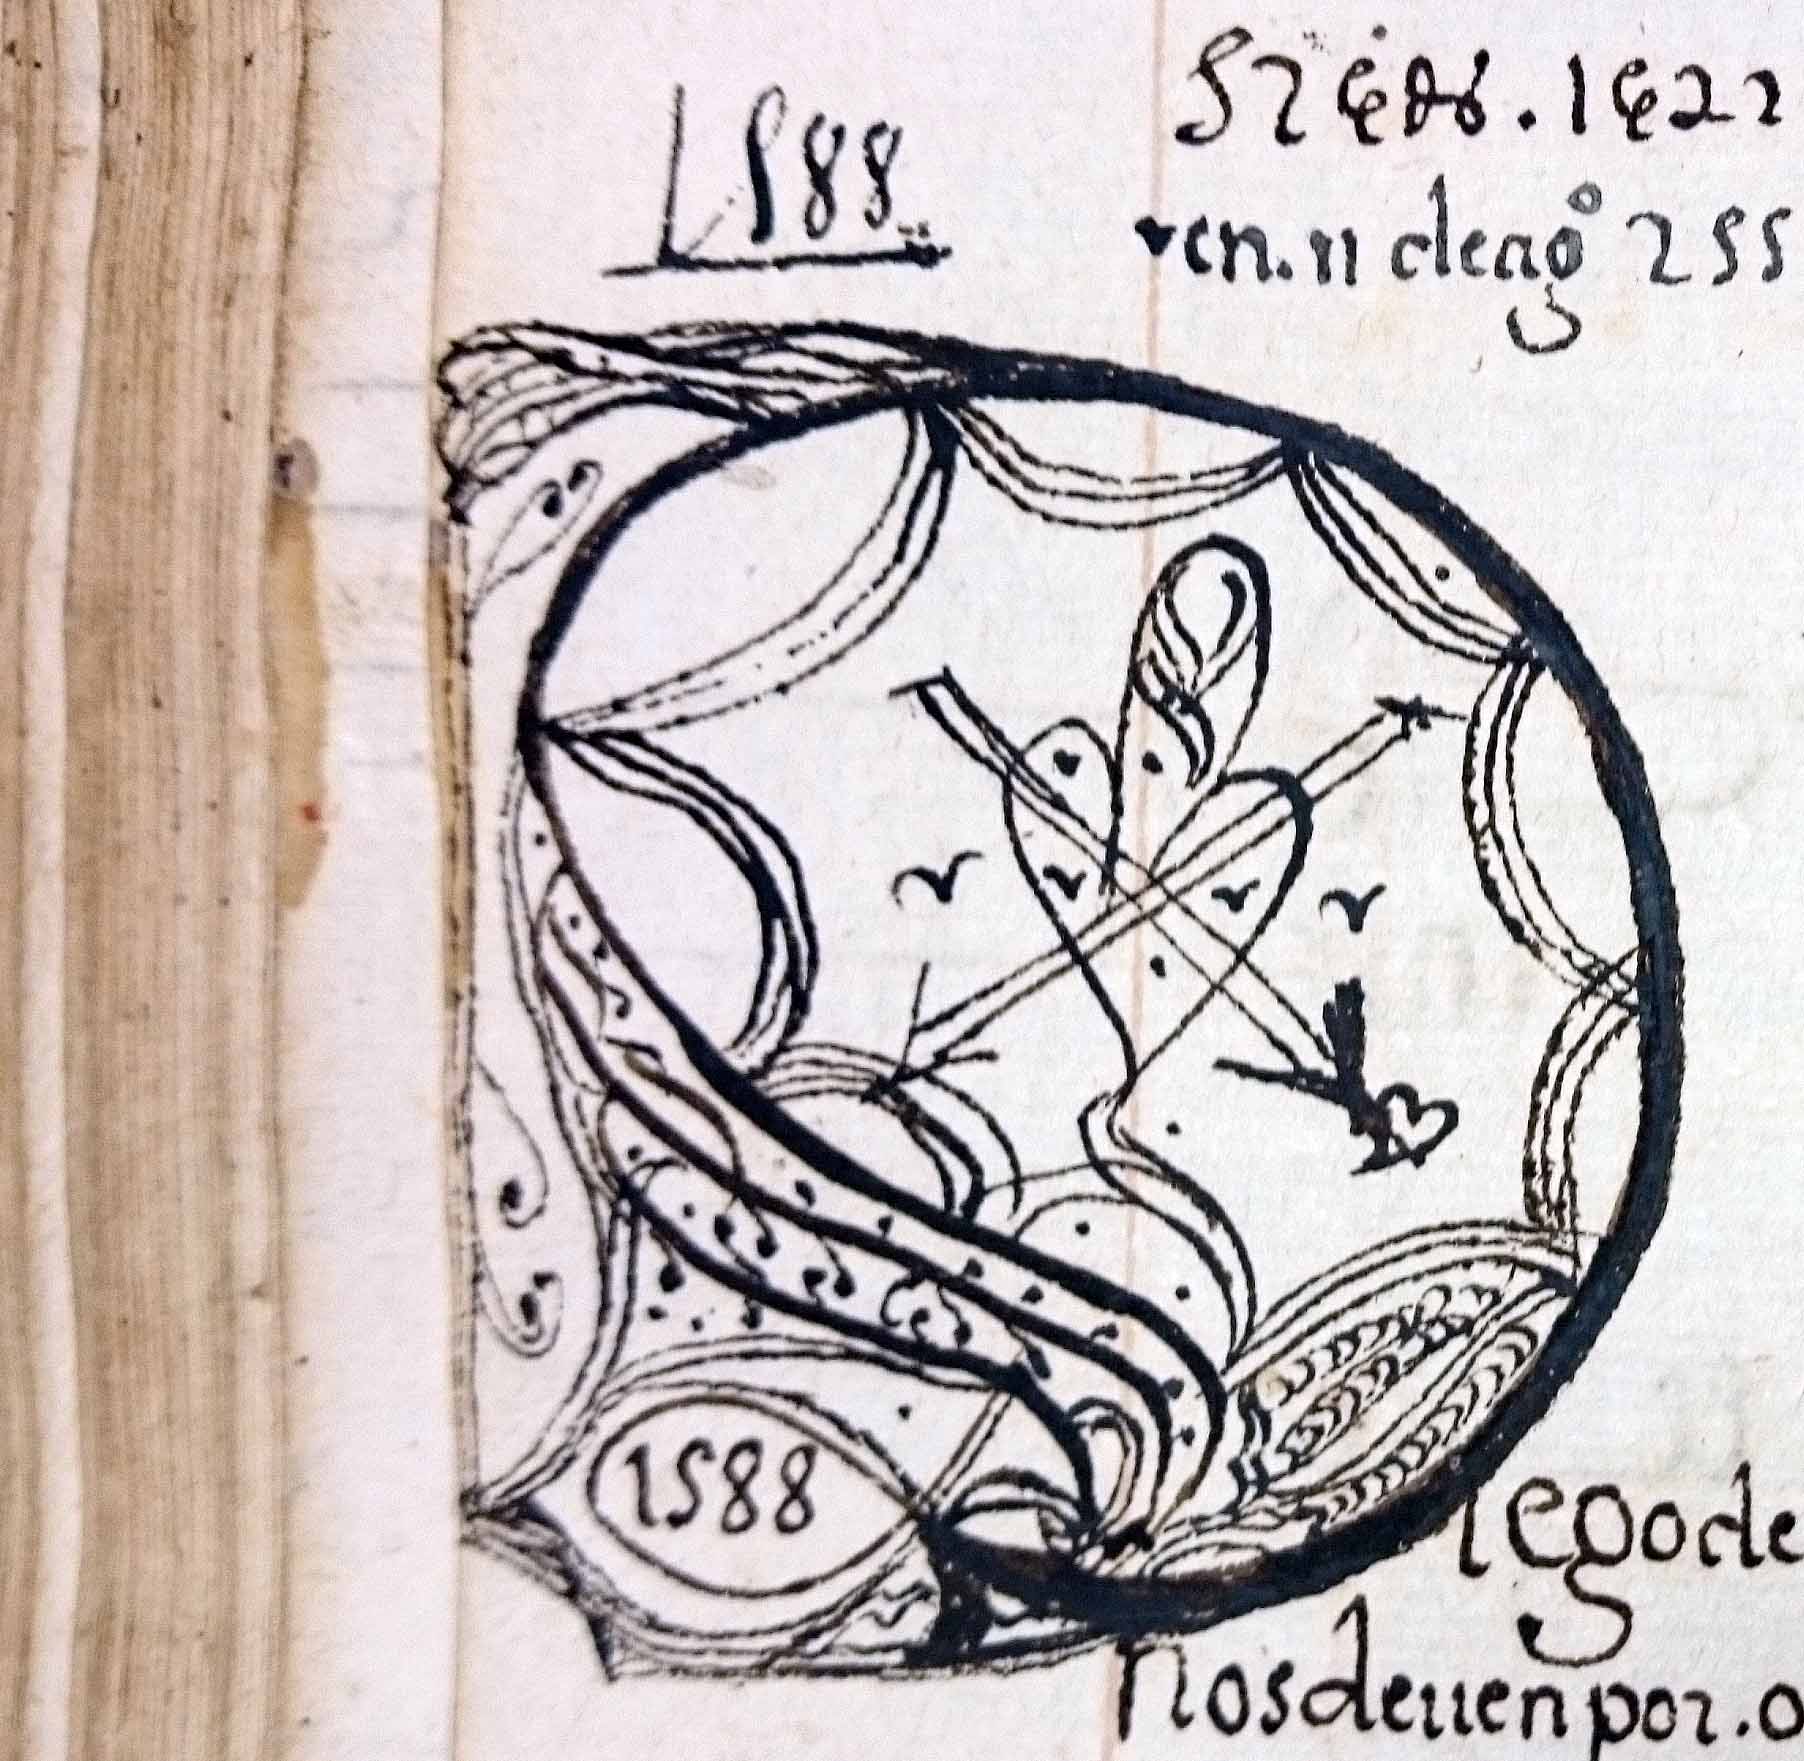 1588
1622
en. 11 de ag° 255
1588
iego de
nos deuen por. o